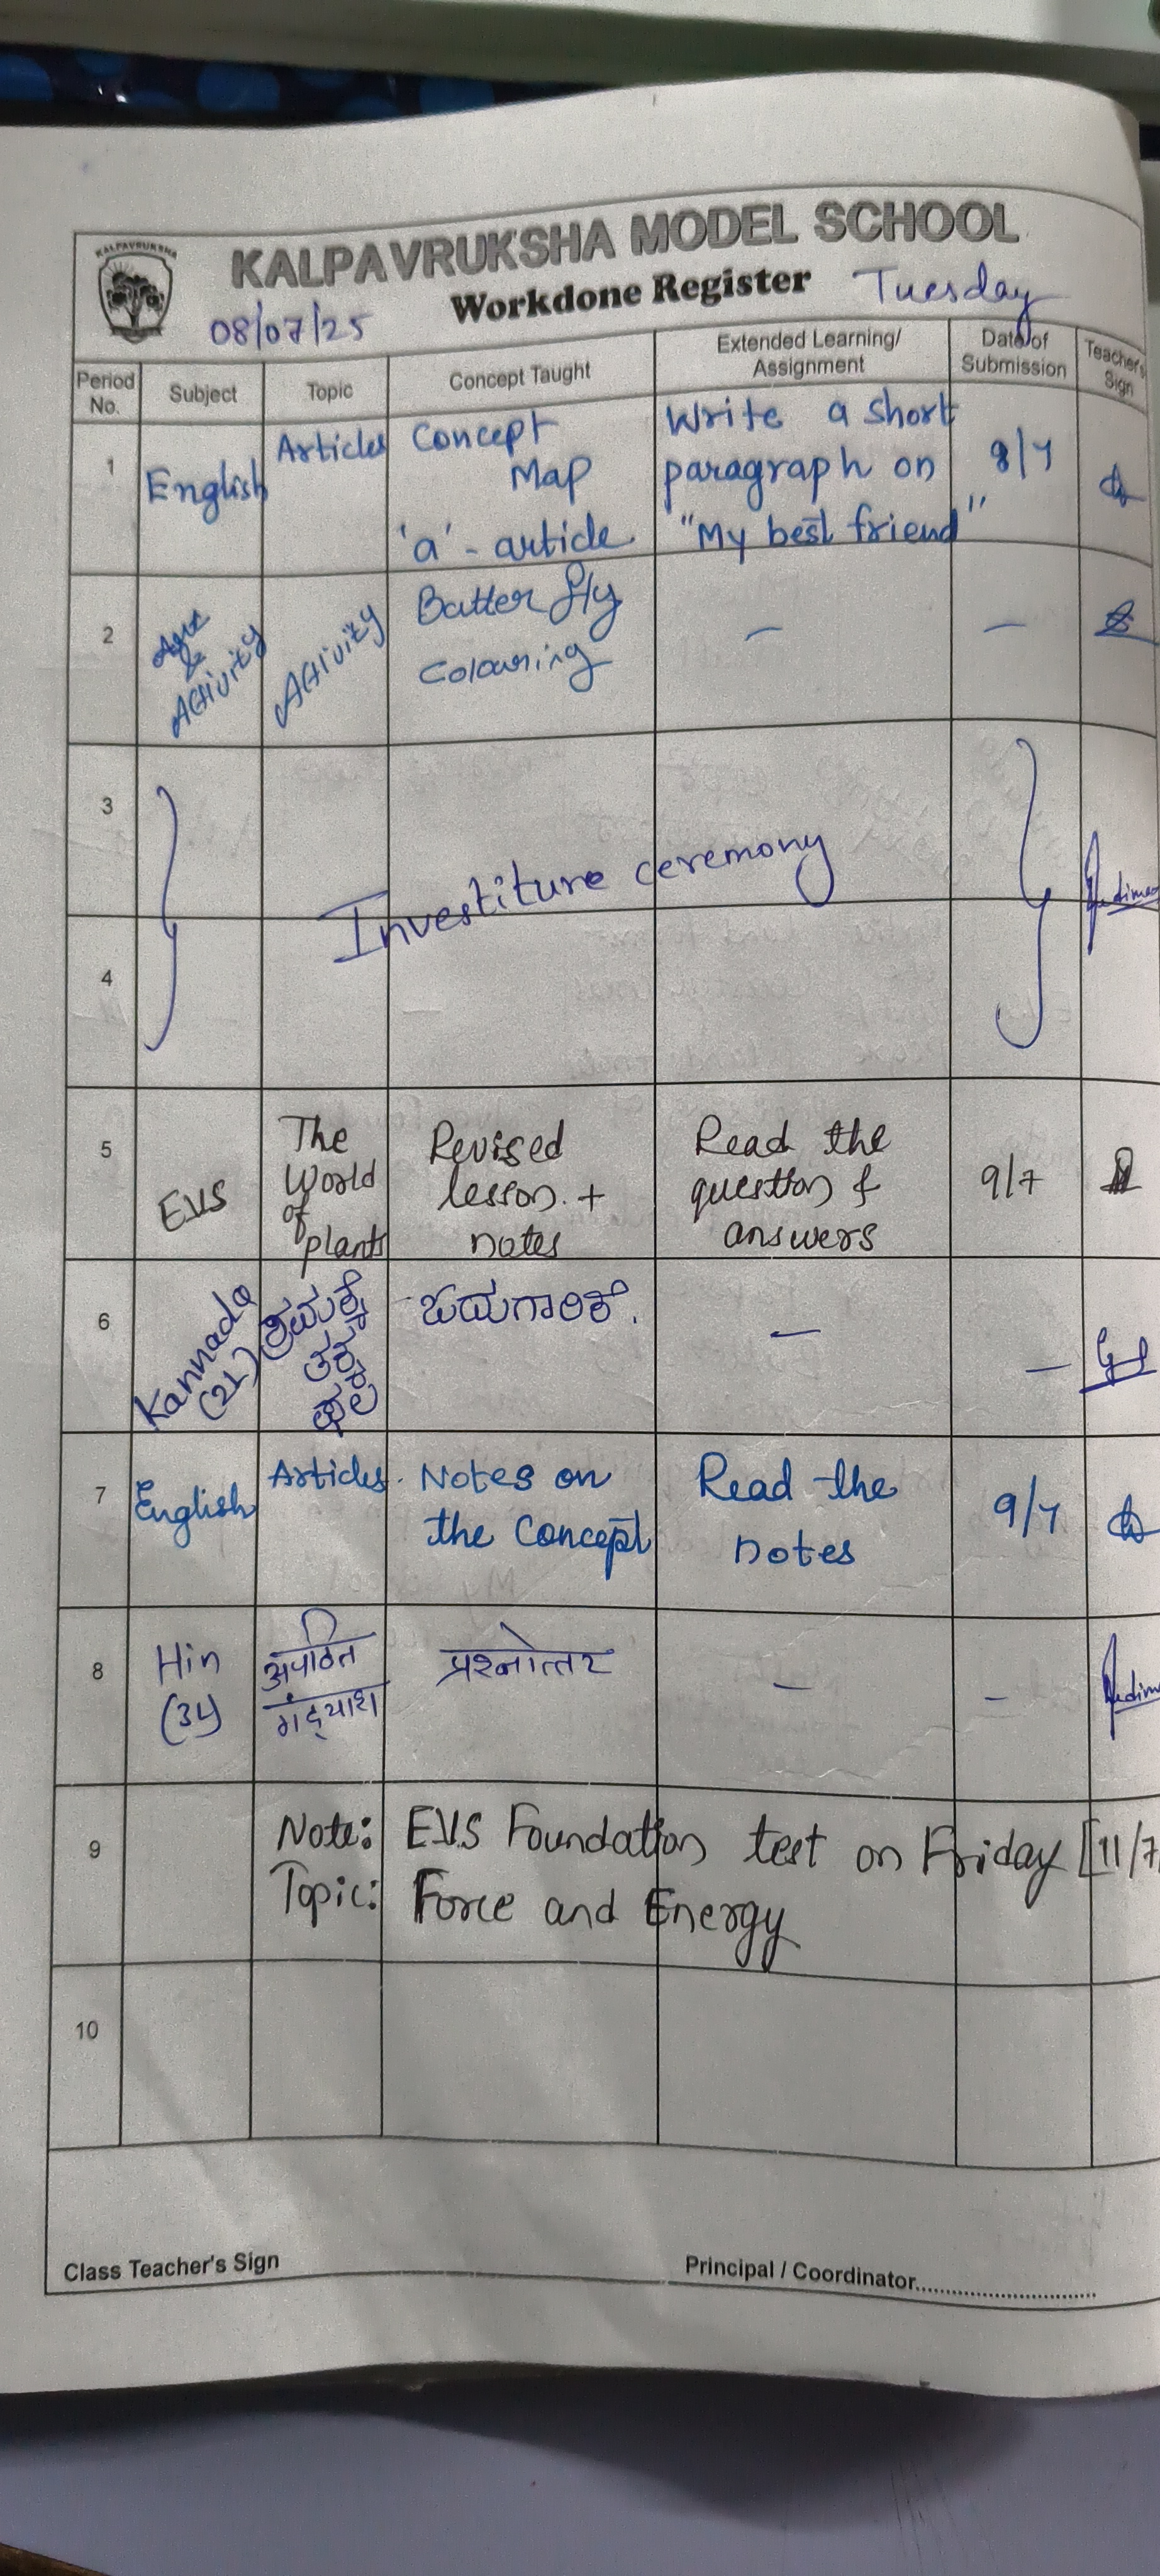 KALPAVRUKSHA
KALPAVRUKSHA MODEL SCHOOL
Workdone Register
Tuesday
08/07/25
Period No.
Subject
Topic
Concept Taught
Extended Learning/ Assignment
Date of Submission
Teacher's Sign
1
English
Articles
Concept
Map
'a' - article
Write a short
paragraph on
"My best friend"
9/7
2
&
Activity
Activity
Butterfly
Colouring
—
—
3
4
Investiture ceremony
5
EVS
The
World
of
plants
Revised
lesson. +
notes
Read the
question &
answers
9/7
6
Kannada
(2L)
ಶ್ರಮಕ್ಕೆ
ತಕ್ಕ
ಫಲ
ಓದುಗಾರಿಕೆ.
—
—
7
English
Articles.
Notes on
the Concept
Read the
notes
9/7
8
Hin
(3L)
अपठित
गद्यांश
प्रश्नोत्तर
—
-
9
Note: EVS Foundation test on Friday [11/7
Topic: Force and Energy
10
Class Teacher's Sign
Principal / Coordinator